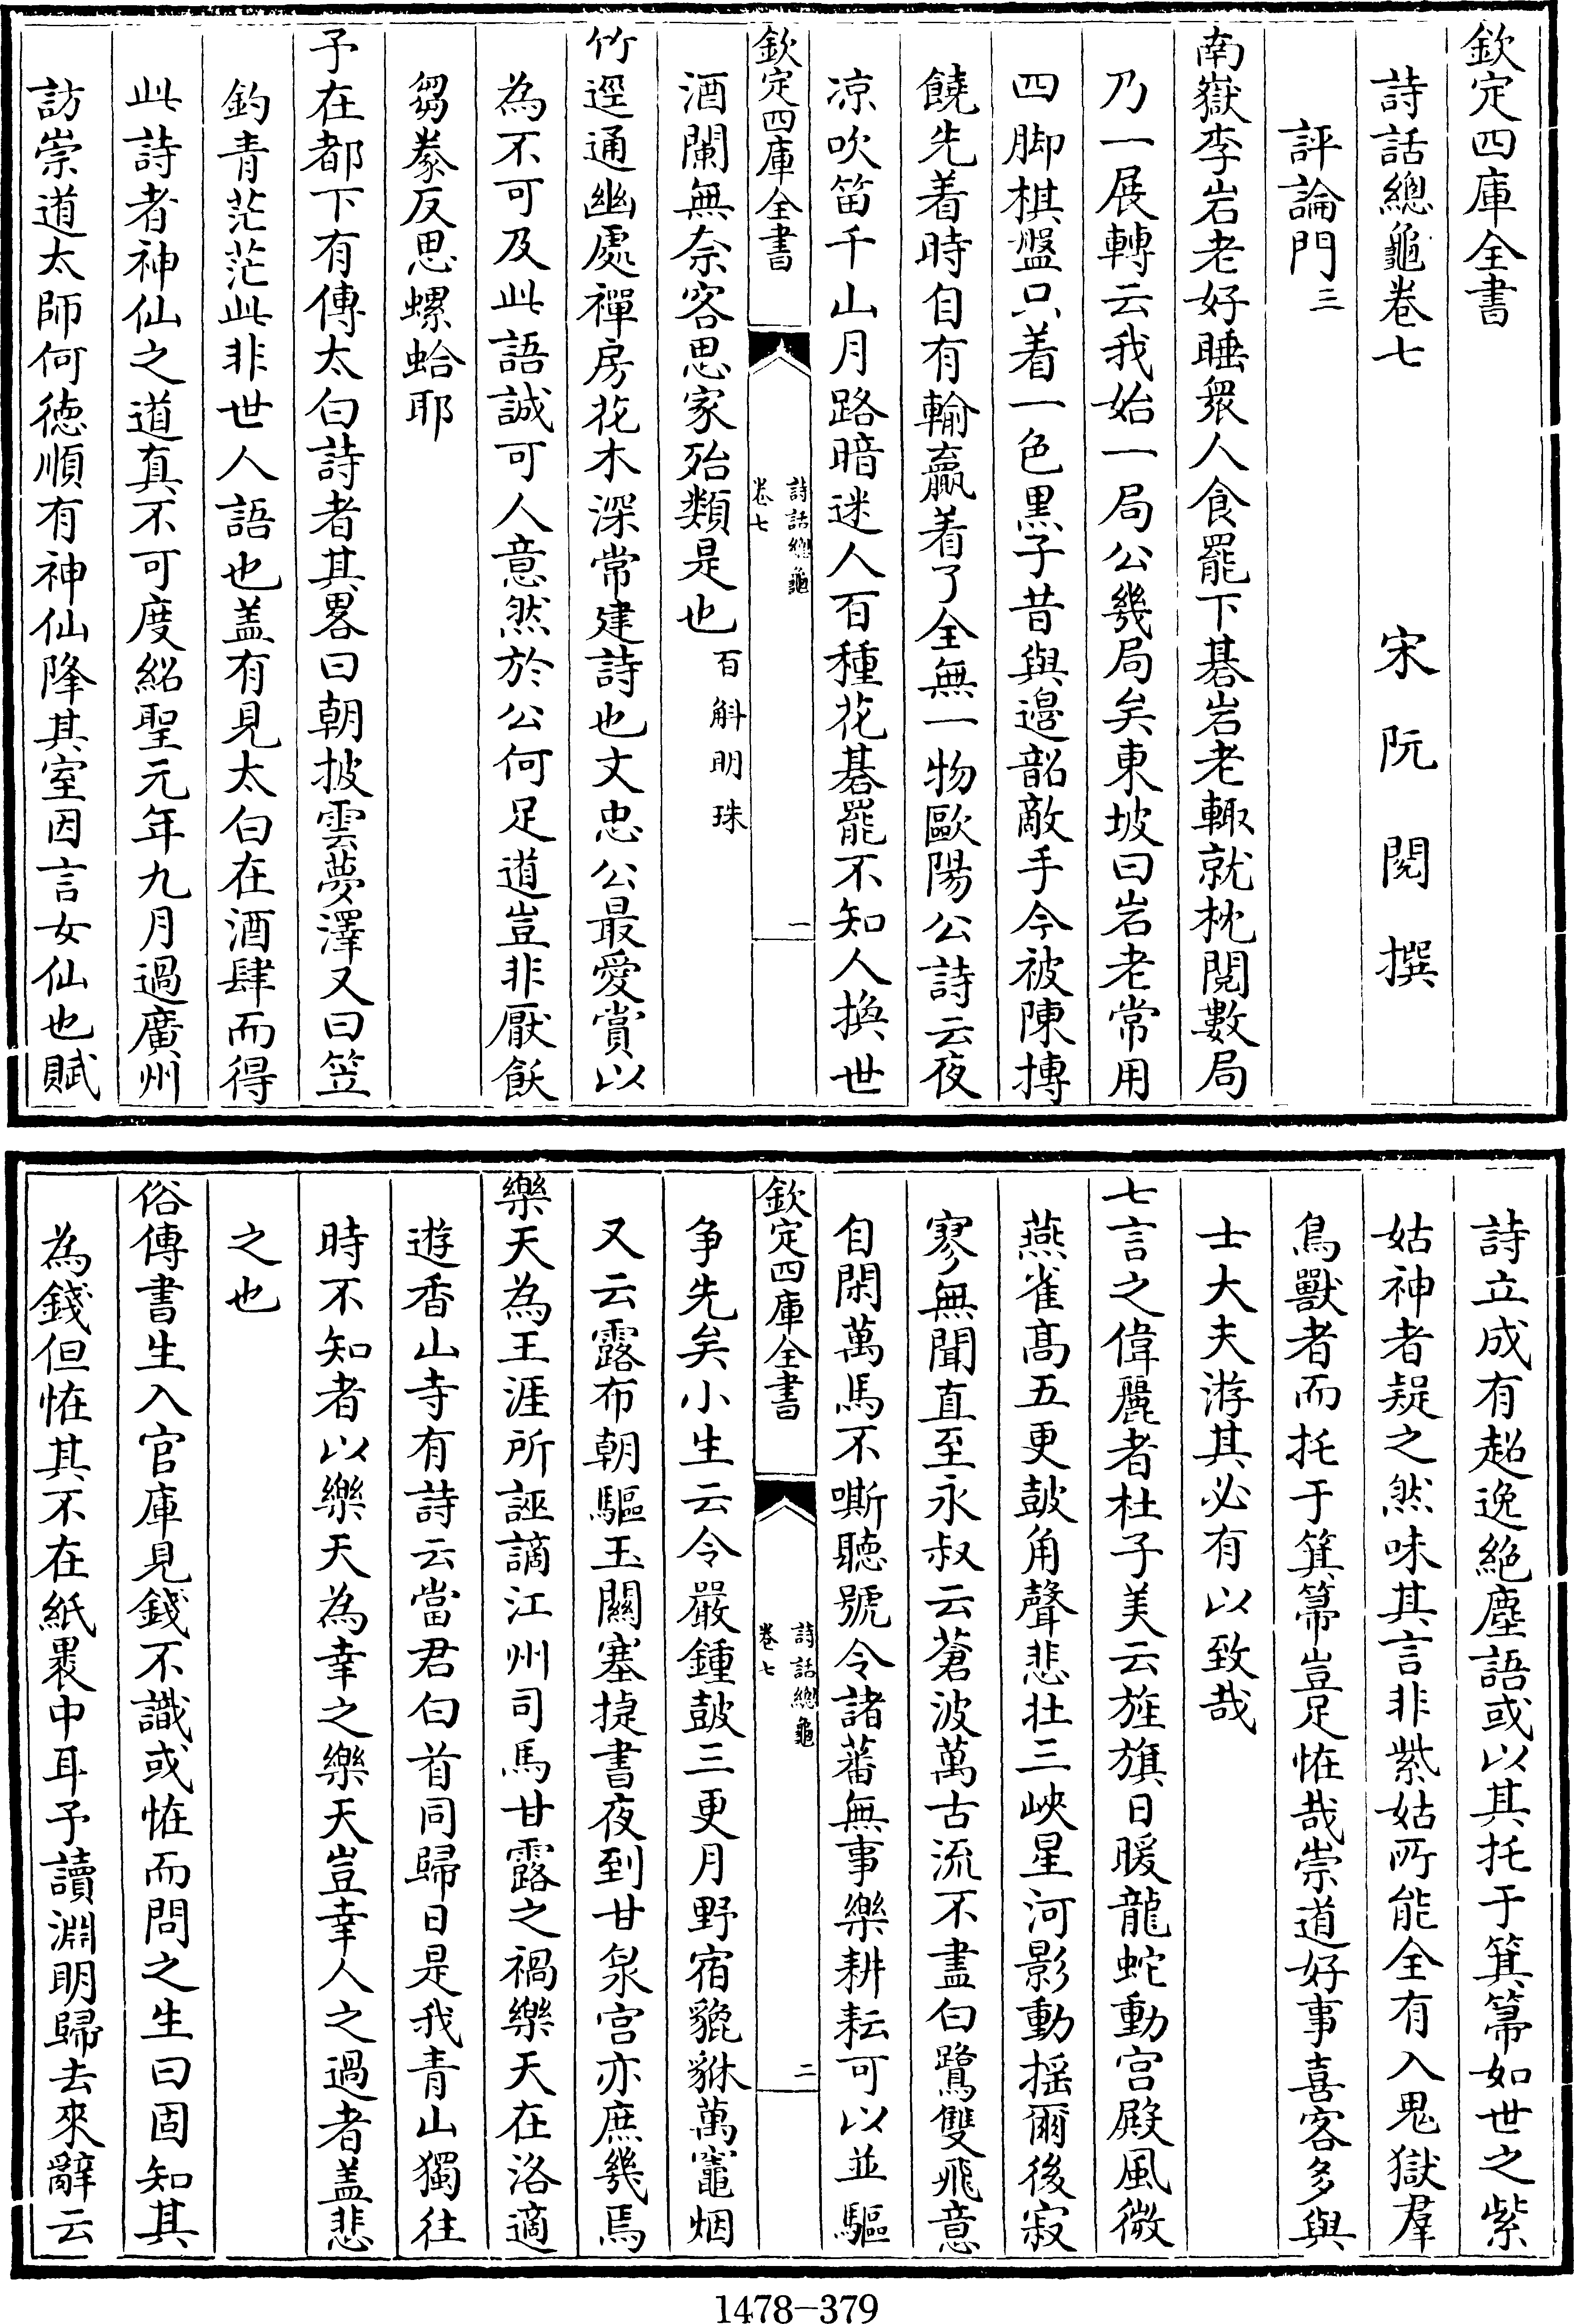 欽定四庫全書
詩話總龜卷七
宋 阮閱 撰
評論門三
南嶽李岩老好睡衆人食罷下碁岩老輙就枕閱數局
乃一展轉云我始一局公幾局矣東坡曰岩老常用
四脚棋盤只着一色黑子昔與邉韶敵手今被陳摶
饒先着時自有輸贏着了全無一物歐陽公詩云夜
凉吹笛千山月路暗迷人百種花碁罷不知人換世
欽定四庫全書
詩話總龜
卷七
一
酒闌無奈客思家殆類是也百斛明珠
竹逕通幽處禪房花木深常建詩也文忠公最愛賞以
為不可及此語誠可人意然於公何足道豈非厭飫
芻豢反思螺蛤耶
予在都下有傳太白詩者其畧曰朝披雲夢澤又曰笠
釣青茫茫此非世人語也盖有見太白在酒肆而得
此詩者神仙之道真不可度紹聖元年九月過廣州
訪崇道太師何徳順有神仙降其室因言女仙也賦
詩立成有超逸絶塵語或以其托于箕箒如世之紫
姑神者疑之然味其言非紫姑所能全有入鬼獄羣
鳥獸者而托于箕箒豈足恠哉崇道好事喜客多與
士大夫游其必有以致哉
七言之偉麗者杜子美云旌旗日暖龍蛇動宫殿風微
燕雀髙五更鼓角聲悲壮三峽星河影動摇爾後寂
寥無聞直至永叔云蒼波萬古流不盡白鷺雙飛意
自閑萬馬不嘶聽號令諸蕃無事樂耕耘可以並驅
欽定四庫全書
詩話總龜
卷七
二
争先矣小生云令嚴鍾鼓三更月野宿貔貅萬竈烟
又云露布朝驅玉關塞捷書夜到甘泉宫亦庶幾焉
樂天為王涯所誣謫江州司馬甘露之禍樂天在洛適
遊香山寺有詩云當君白首同歸日是我青山獨往
時不知者以樂天為幸之樂天豈幸人之過者盖悲
之也
俗傳書生入官庫見錢不識或恠而問之生曰固知其
為錢但恠其不在紙裹中耳予讀淵明歸去來辭云
1478-379